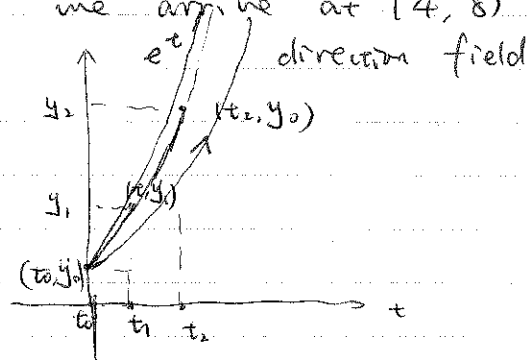 we arrive at (4, 8)
e^t direction field
y₂
(t₂, y₀)
y₁
(t, y₁)
(t₀, y₀)
t₀ t₁ t₂ t